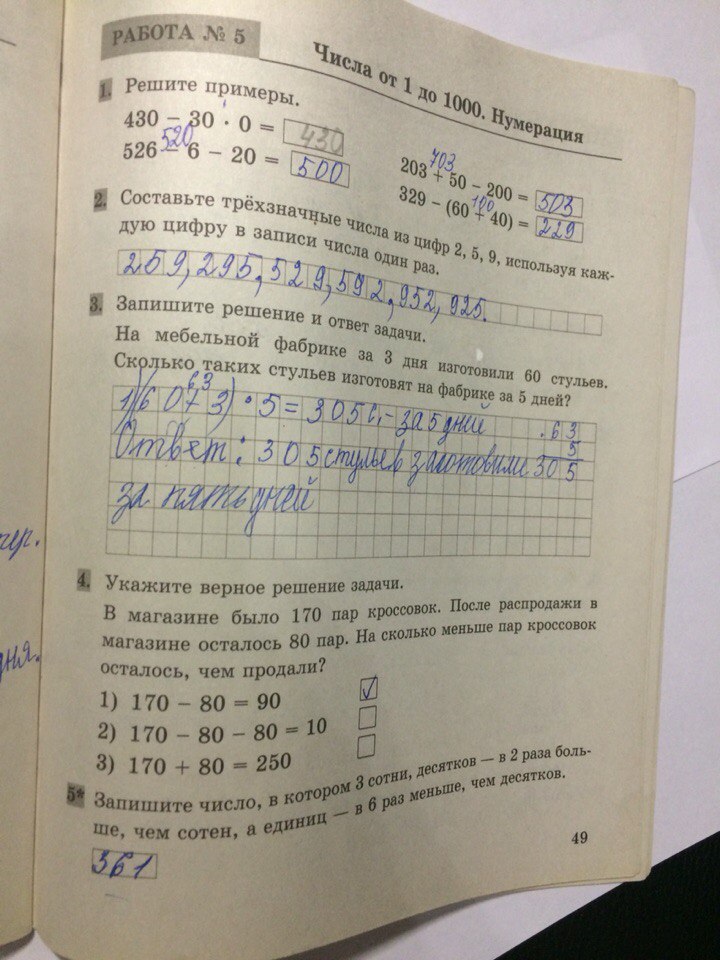 РАБОТА № 5
Числа от 1 до 1000. Нумерация
1. Решите примеры.
430 − 30 · 0 = 430
520
526 − 6 − 20 = 500
703
203 + 50 − 200 = 503
100
329 − (60 + 40) = 229
2. Составьте трёхзначные числа из цифр 2, 5, 9, используя каж-
дую цифру в записи числа один раз.
259, 295, 529, 592, 952, 925.
3. Запишите решение и ответ задачи.
На мебельной фабрике за 3 дня изготовили 60 стульев.
Сколько таких стульев изготовят на фабрике за 5 дней?
63
· 5 = 305 с. - за 5 дней
63
5
Ответ: 305 стульев заготовили 305
за пять дней
4. Укажите верное решение задачи.
В магазине было 170 пар кроссовок. После распродажи в
магазине осталось 80 пар. На сколько меньше пар кроссовок
осталось, чем продали?
1) 170 − 80 = 90 ✓
2) 170 − 80 − 80 = 10
3) 170 + 80 = 250
5* Запишите число, в котором 3 сотни, десятков — в 2 раза боль-
ше, чем сотен, а единиц — в 6 раз меньше, чем десятков.
361
49
дня.